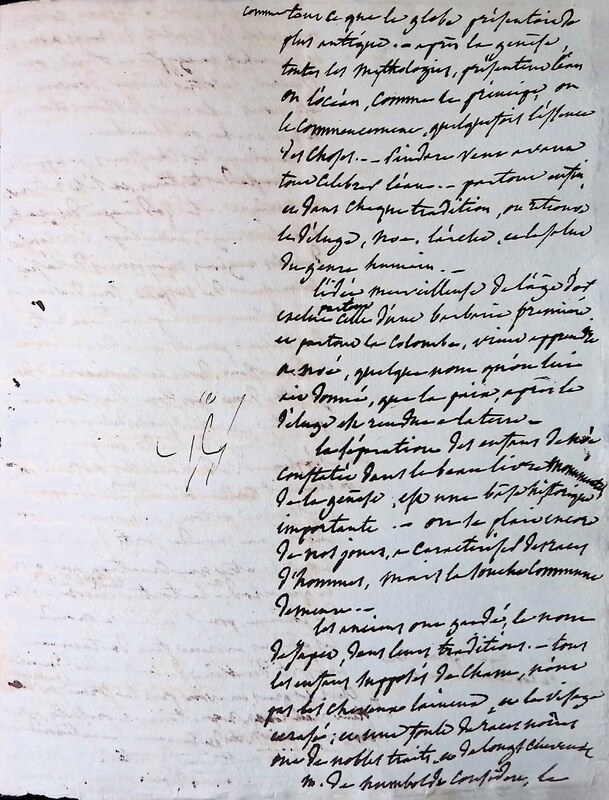 comme tout ce que le globe présentoit de
plus antique. — après la genèse,
toutes les mythologies, présentent l'eau
ou l'océan, comme le principe, ou
le commencement, quelquefois l'essence
des choses. — Pindare veut avant
tout célébrer l'eau. — partout enfin,
et dans chaque tradition, on retrouve
le déluge, noé, l'arche, et le salut
du genre humain. —
l'idée merveilleuse de l'âge d'or
exclut partout celle d'une barbarie première
et partout la colombe, vient apprendre
a noé, quelque nom qu'on lui
ait donné, que la paix, après le
déluge est rendue a la terre —
la séparation des enfans de noé
constatée dans le beau livre
de la genèse, est une base historique
importante. — on se plait encore
de nos jours, a caractériser des races
d'hommes, mais la souche commune
demeure. —
les anciens ont gardé, le nom
de Japet, dans leurs traditions. — tous
les enfans supposés de Cham, n'ont
pas les cheveux laineux, et le visage
écrasé; et une foule de races noires
ont de nobles traits, et de longs cheveux
m. de humboldt considère, le